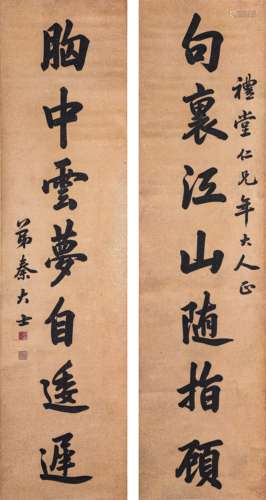 禮堂仁兄年大人正
句裏江山随指顧
胸中雲夢自逶遲
弟秦大士